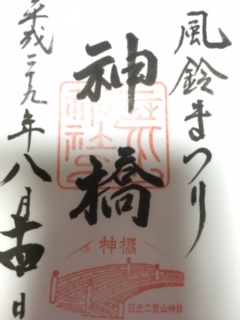 風鈴まつり
神橋
平成二十九年八月十四日
神橋
日光二荒山神社